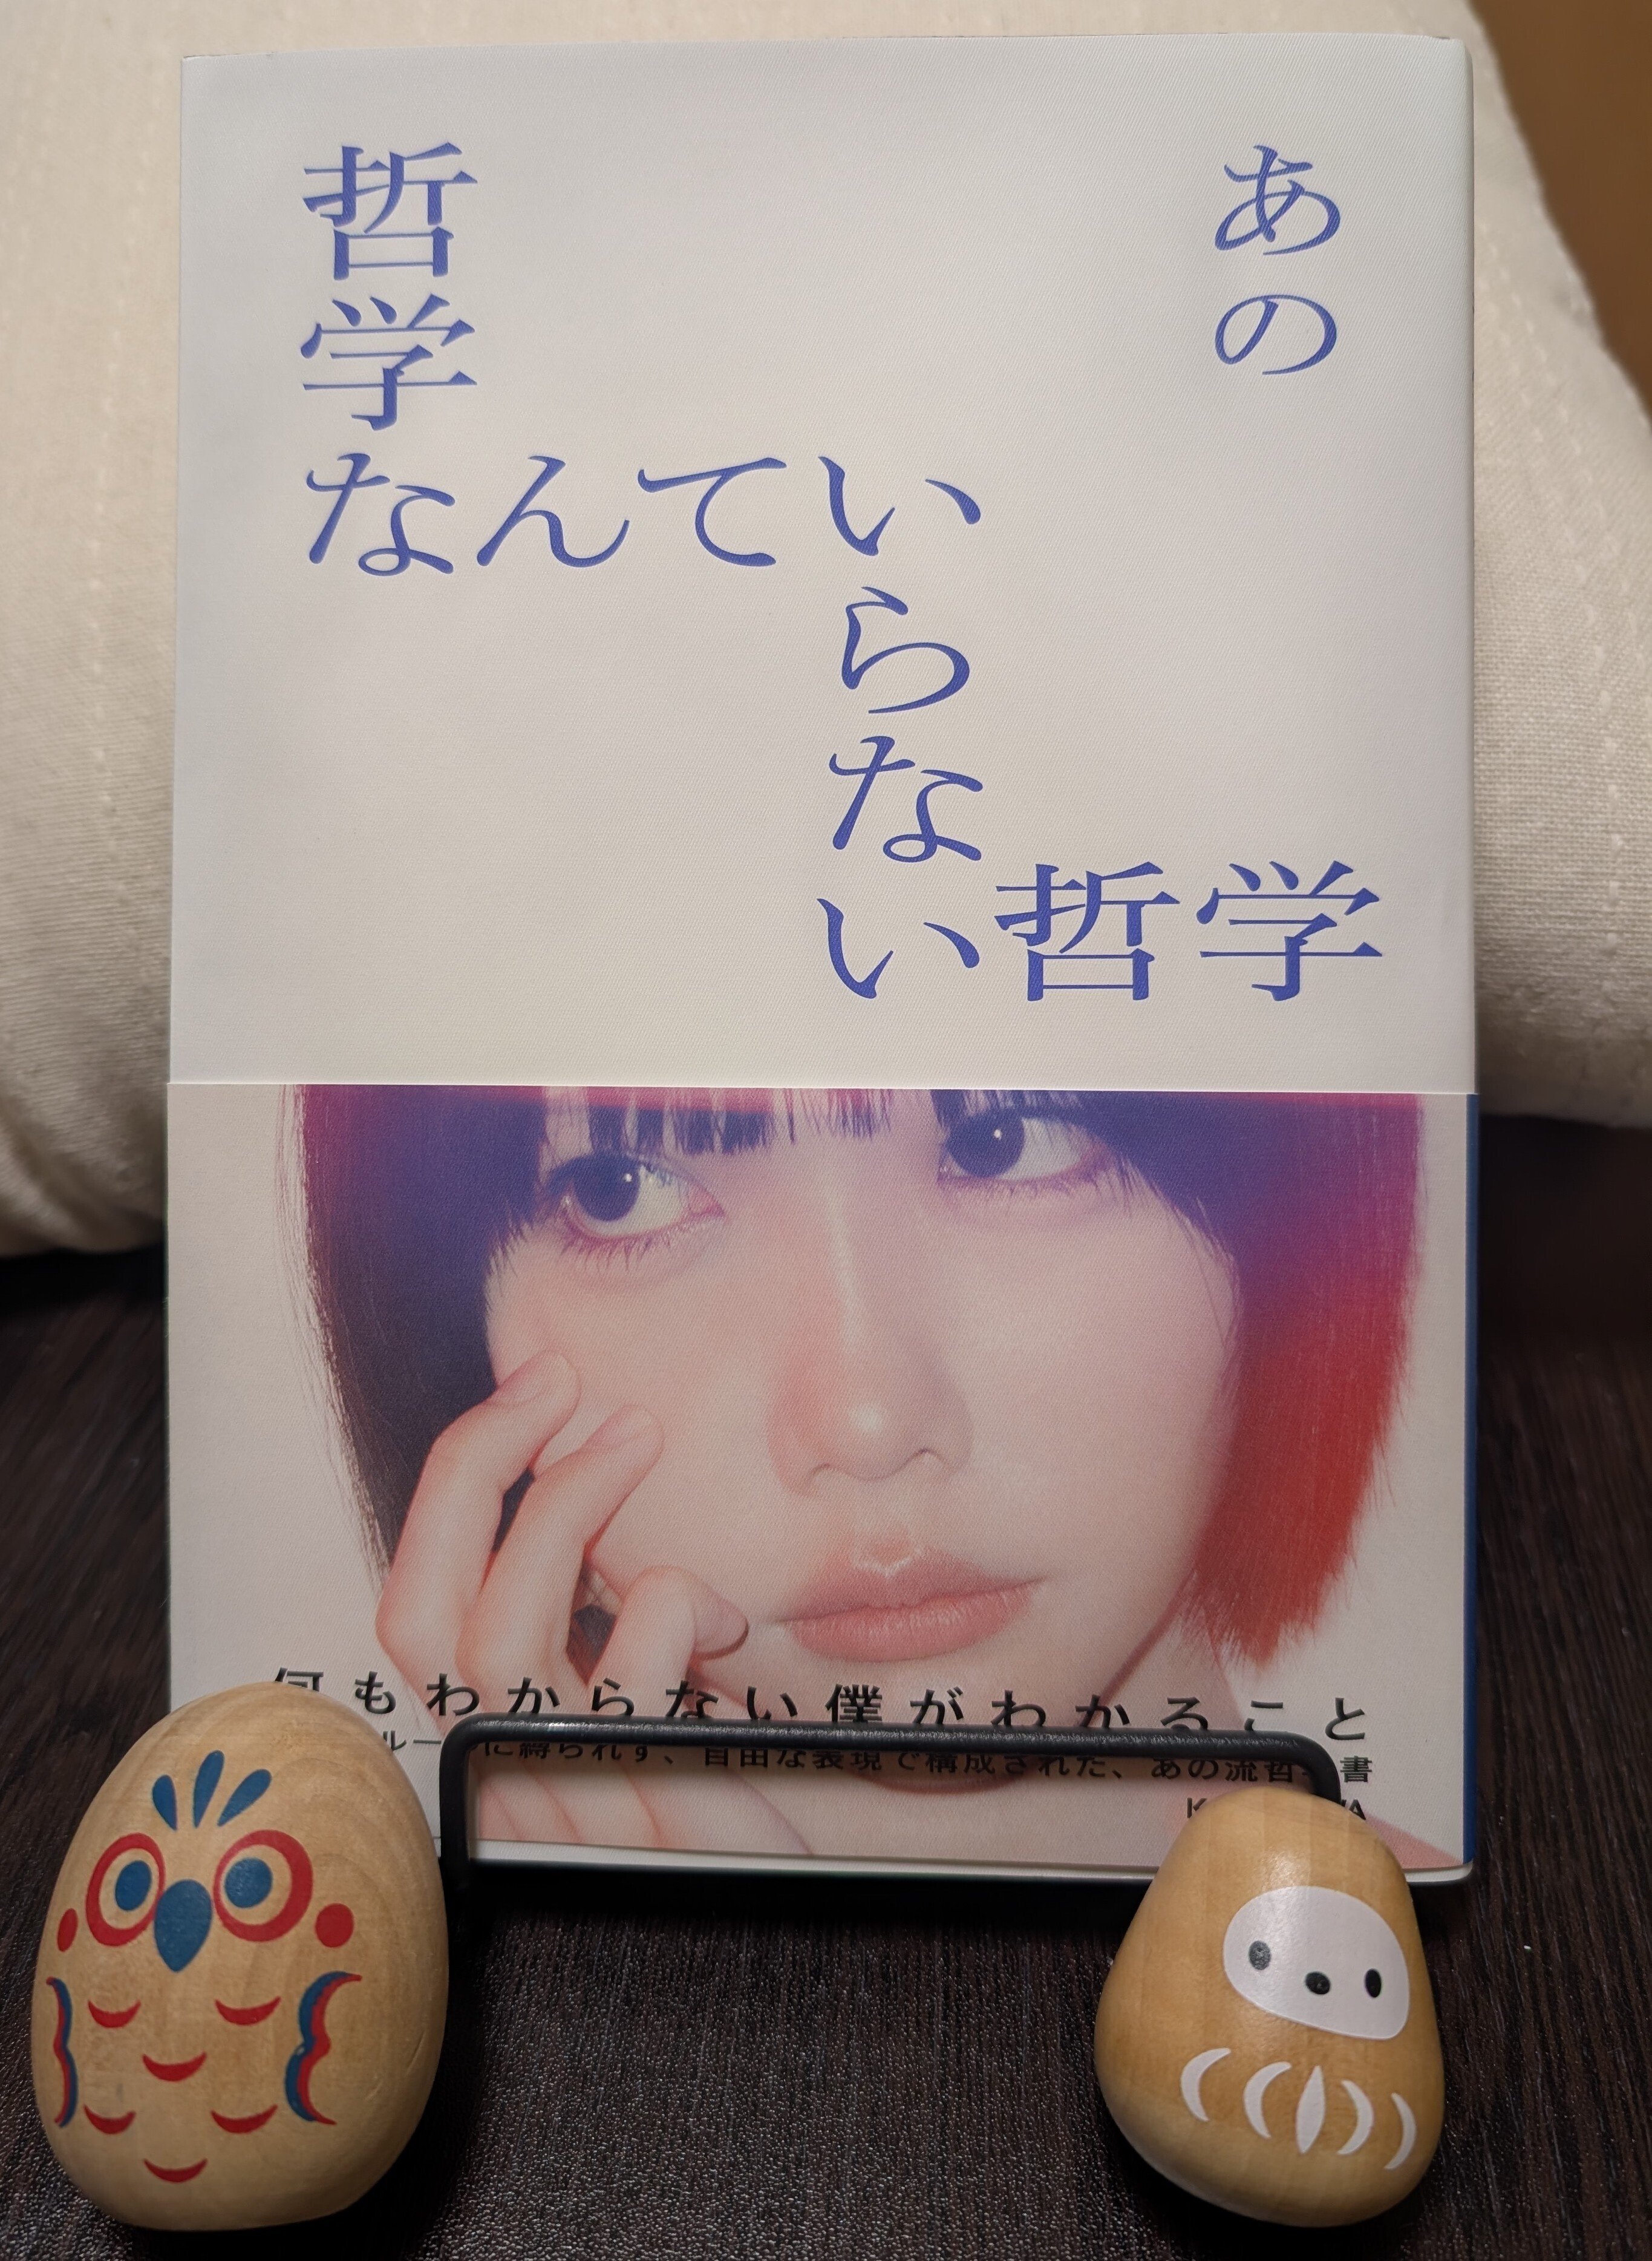 あの
哲学なんていらない哲学
何もわからない僕がわかること
に縛られず、自由な表現で構成された、あの流哲
書